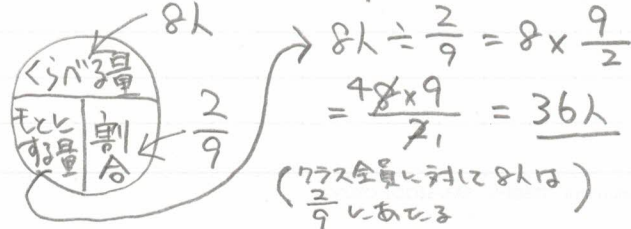 8人
くらべる量
もとにする量
割合
2/9
8人÷2/9=8×9/2
=4 8×9/2 1=36人
(クラス全員に対して8人は
2/9にあたる)